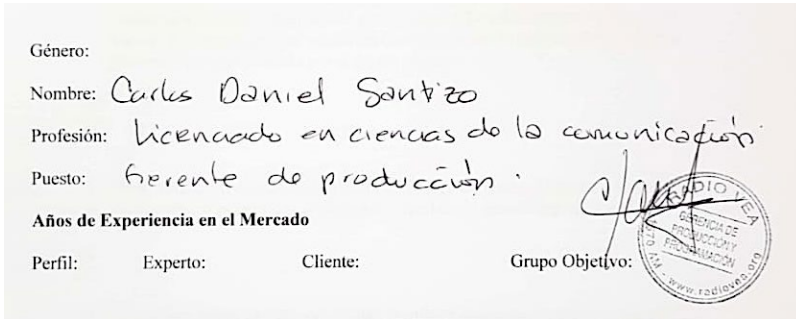 Género:
Nombre: Carlos Daniel Santizo
Profesión: Licenciado en ciencias de la comunicación.
Puesto: Gerente de producción.
Años de Experiencia en el Mercado
Perfil: Experto: Cliente: Grupo Objetivo:
RADIO VEA
GERENCIA DE
PRODUCCIÓN Y
PROGRAMACIÓN
1570 AM - www.radiovea.org